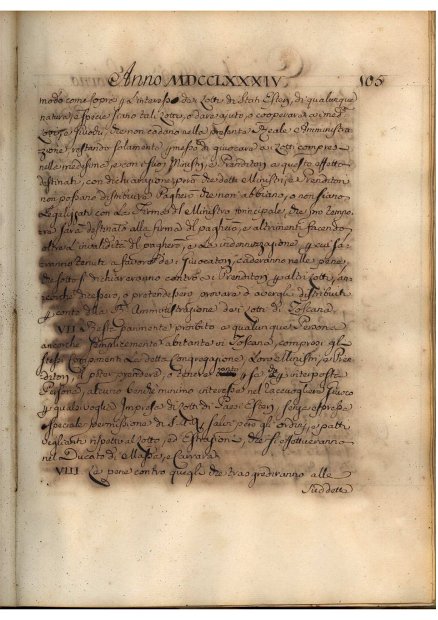 Anno MDCCLXXXIV 105
modo come sopra p interesse de Lotti di Stati Esteri, di qualunque
natura, e specie siano tali Lotti, o dare ajuto, o cooperare a i med.
Lotti, e Giuochi, che non cadano nella presente Reale Amministra
zione, restando solamente permesso di giuocare a i Lotti compresi
nella medesima, e con i suoi Ministri, e Prenditori a questo effetto
destinati, con dichiarazione, però che detti Ministri, e Prenditori
non possano distribuire Pagherò, che non abbiano, o non siano
Legalizzati con La Firma del Ministro principale, che pro tempo
re sarà destinato alla firma del pagherò, e altrimenti facendo
oltre l'invalidità del pagherò, e La indennizzazione, a cui sa
ranno tenuti a favore de i Giuocatori, caderanno nelle pene,
che sotto si dichiareranno contro e i Prenditori p altri Lotti, an
corchè dicessero, o pretendessero provare d'avergli distribuiti
p conto della R. Amministrazione dei Lotti di Toscana.
VII Resta parimente proibito a qualunque Persona
ancorchè semplicemente abitante in Toscana, compresi gli
stessi componenti La detta Congregazione, Loro Ministri, e Pre
ditori, il poter prendere, o tenere p se, o p interposta
Persona, alcuno benchè minimo interesse nel
p qualsivoglia Impresa di Lotti di Paesi Esteri, senza espressa
speciale permissione di S.A.R., salvi però gli ordini, e patti
veglianti rispetto al Lotto, ed Estrazioni che si effettueranno
nel Ducato di Massa, e Carrara.
VIII Le pene contro quegli che trasgrediranno alle
Suddette